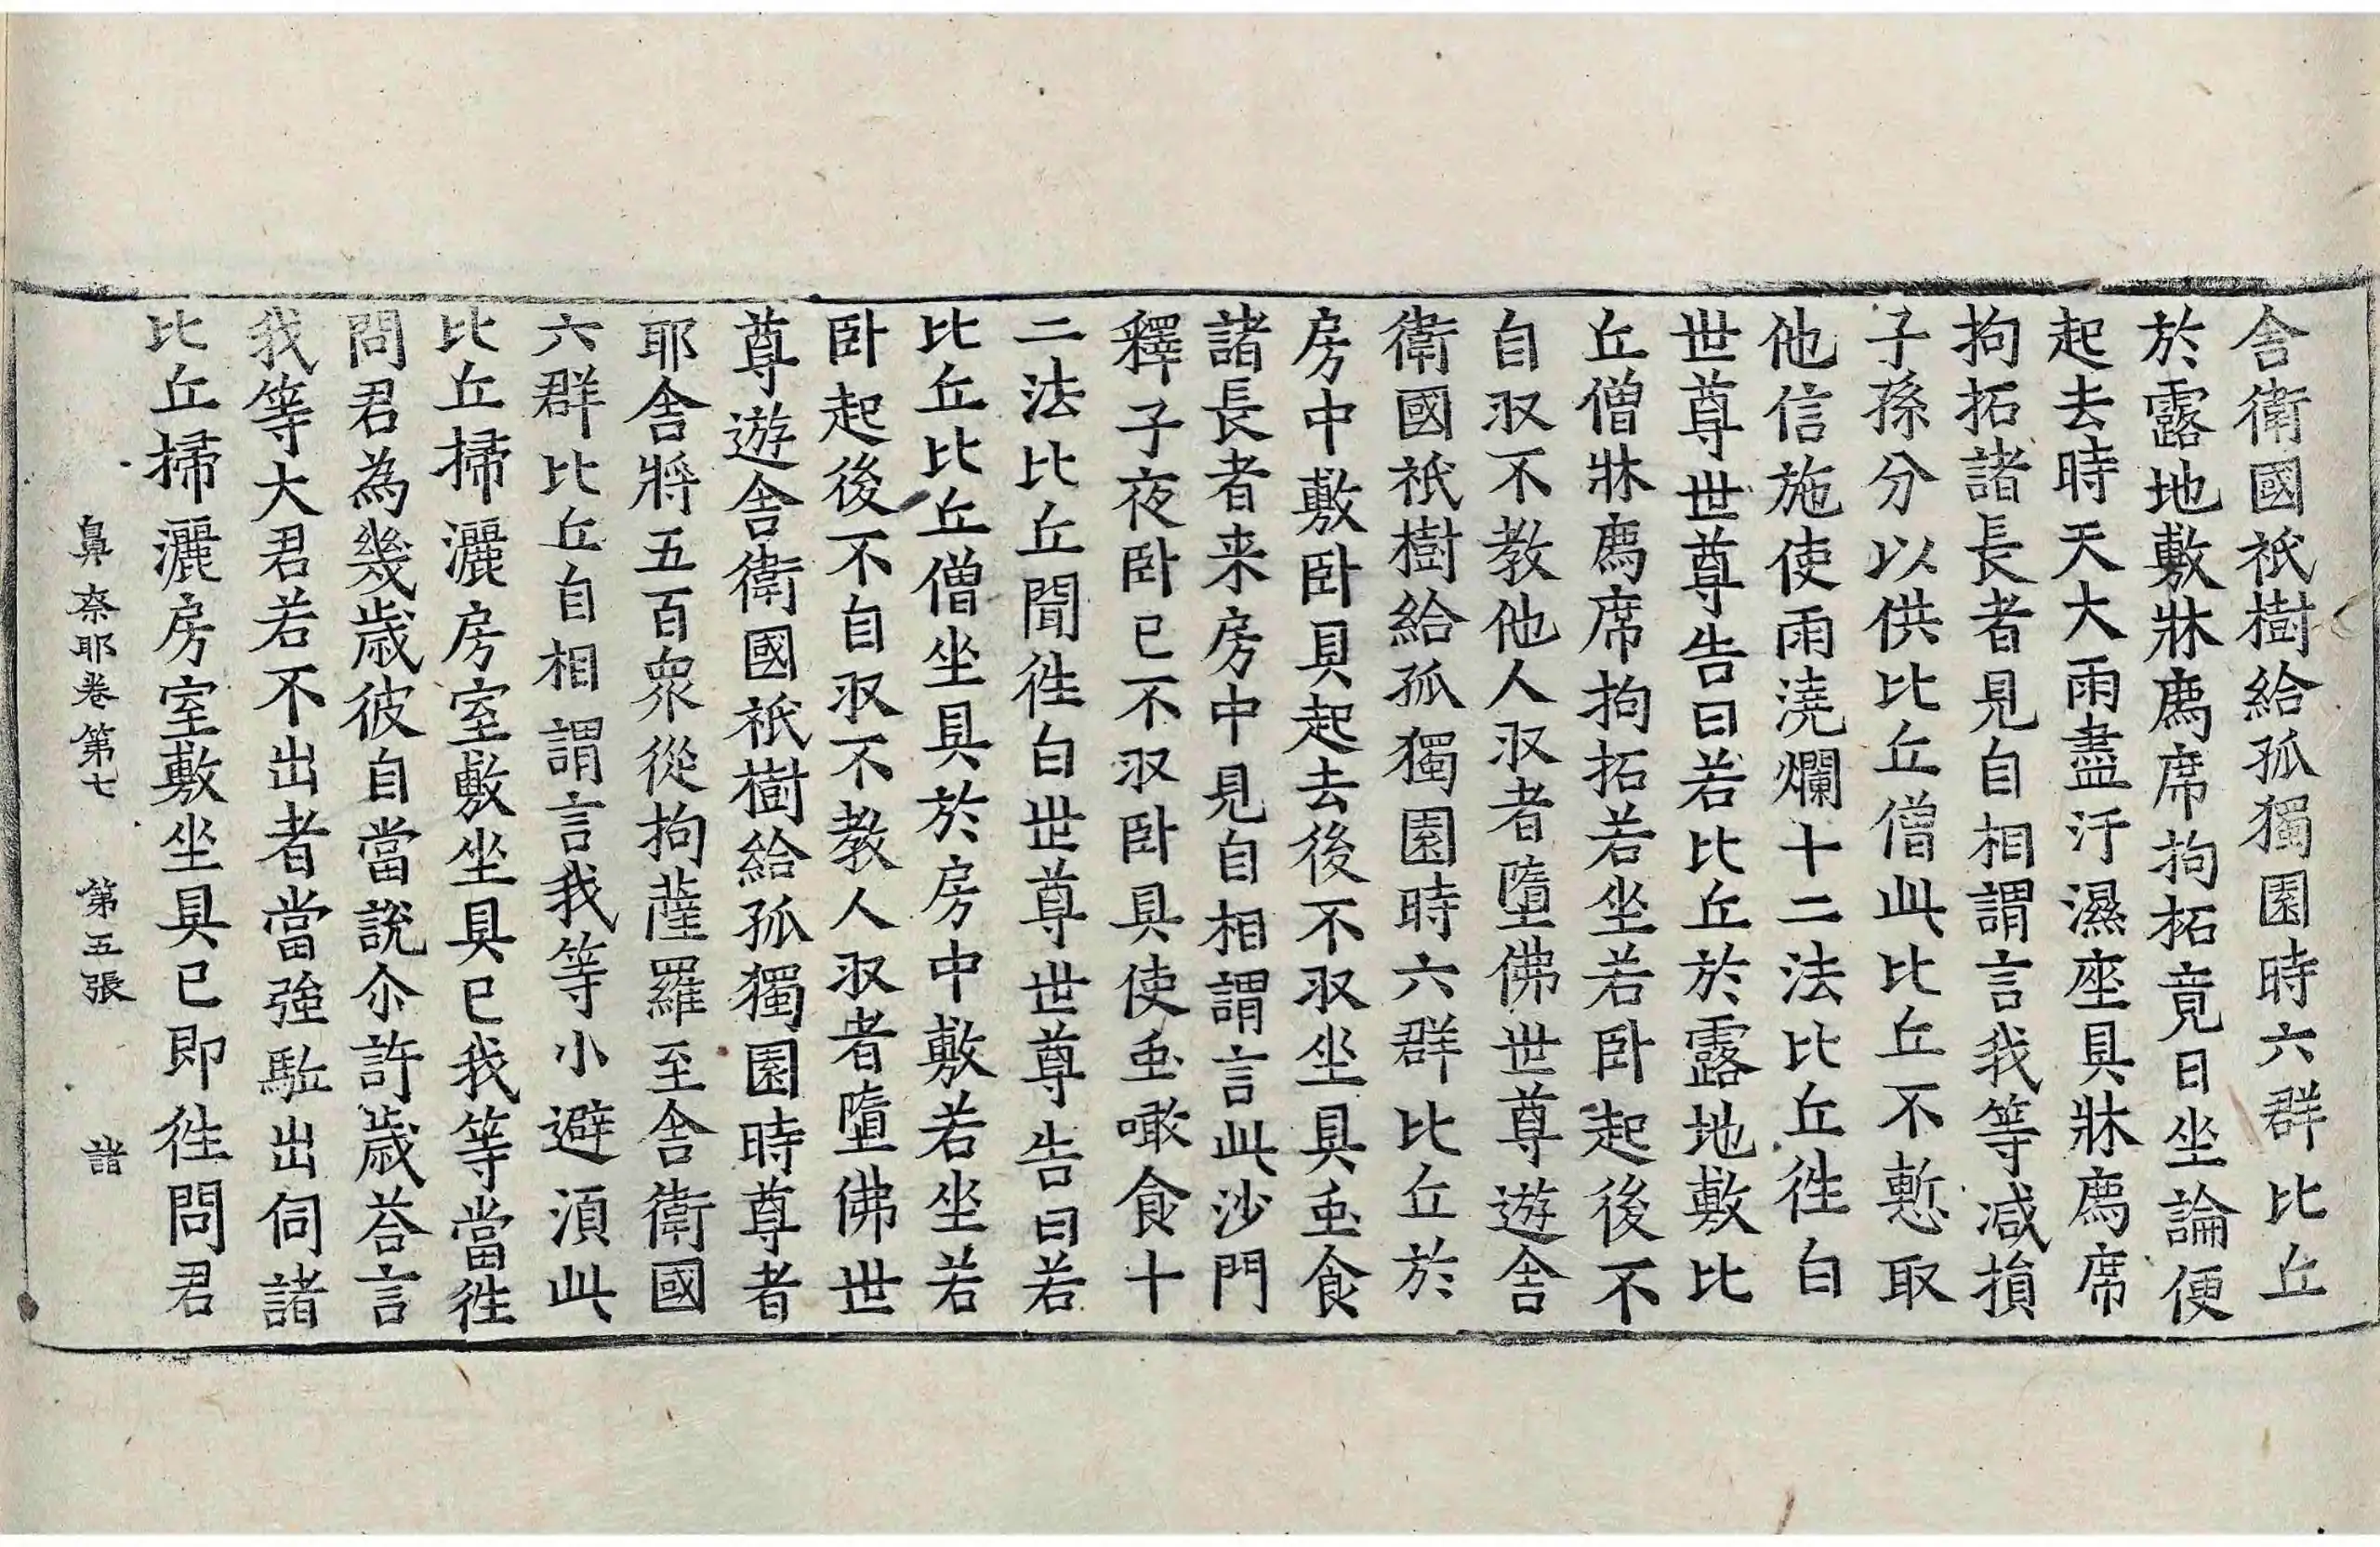 舎衛國祇樹給孤獨園時六群比丘
於露地敷牀薦席拘拓竟日坐論便
起去時天大雨盡汙濕座具牀薦席
拘拓諸長者見自相謂言我等減損
子孫分以供比丘僧此比丘不慙取
他信施使雨澆爛十二法比丘徃白
世尊世尊告曰若比丘於露地敷比
丘僧牀薦席拘拓若坐若卧起後不
自取不教他人取者墮佛世尊遊舎
衛國祇樹給孤獨園時六群比丘於
房中敷卧具起去後不取坐具䖝食
諸長者来房中見自相謂言此沙門
釋子夜卧已不取卧具使䖝噉食十
二法比丘聞徃白世尊世尊告曰若
比丘比丘僧坐具於房中敷若坐若
卧起後不自取不教人取者墮佛世
尊遊舎衛國祇樹給孤獨園時尊者
耶舎將五百衆從拘薩羅至舎衛國
六群比丘自相謂言我等小避湏此
比丘掃灑房室敷坐具已我等當徃
問君為幾歲彼自當説尒許歲荅言
我等大君若不出者當強駈出伺諸
比丘掃灑房室敷坐具已即徃問君
鼻奈耶卷第七 第五張 諸